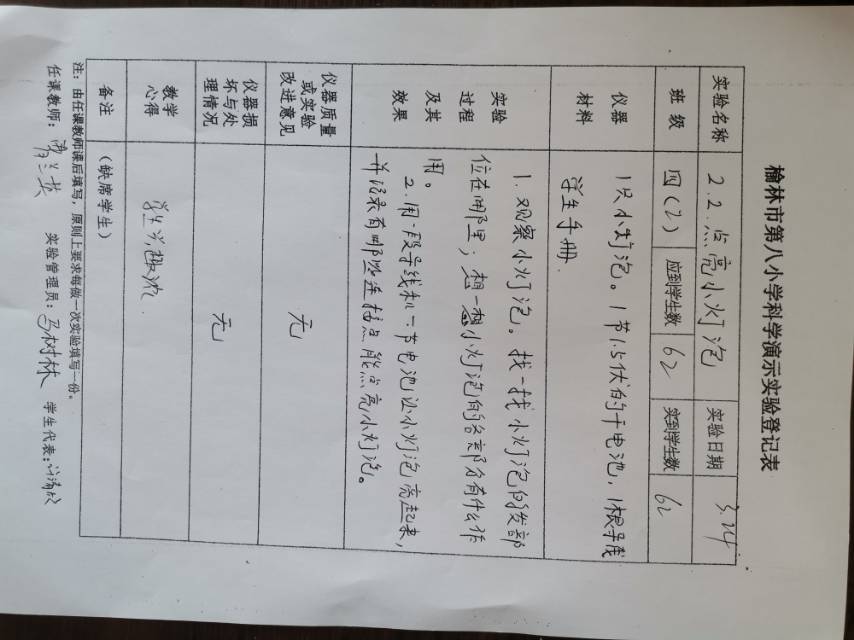 榆林市第八小学科学演示实验登记表
实验名称 2.2.点亮小灯泡 实验日期 3.24
班级 四(2) 应到学生数 62 实到学生数 62
仪器材料 1只小灯泡。1节1.5伏的干电池,1根导线
学生手册.
实验过程及其效果
1.观察小灯泡。找一找小灯泡的各部
位在哪里;想一想小灯泡的各部分有什么作
用。
2.用一段导线和一节电池让小灯泡亮起来,
并记录有哪些连接点能点亮小灯泡。
仪器质量或实验改进意见 无
仪器损坏与处理情况 无
教学心得 学生兴趣浓.
备注 (缺席学生)
注:由任课教师课后填写,原则上要求每做一次实验填写一份。
任课教师: 实验管理员:马树林 学生代表: